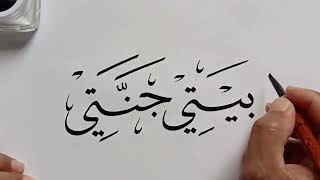 بَيْتِي جَنَّتِي